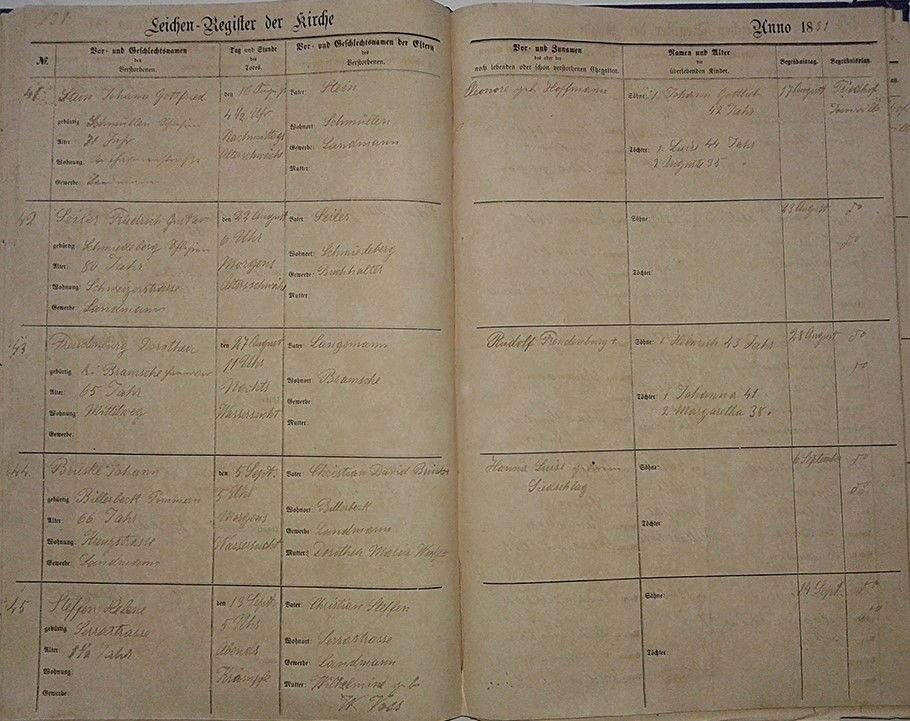 138.
Leichen-Register der Kirche
Anno 1881
№
Vor- und Geschlechtsnamen
des
Verstorbenen.
Tag und Stunde
des
Todes.
Vor- und Geschlechtsnamen der Eltern
des
Verstorbenen.
Vor- und Zunamen
des oder der
noch lebenden oder schon verstorbenen Ehegatten.
Namen und Alter
der
überlebenden Kinder.
Begräbnißtag.
Begräbnißplatz.
41.
Stein Johann Gottfried
gebürtig
Alter: 71 Jahr
Wohnung:
Gewerbe: Landmann
den 16 August
4 1/2 Uhr
Nachmittags
Altersschwäche
Vater: Stein
Wohnort: Schmütten
Gewerbe: Landmann
Mutter:
Eleonore geb. Hoffmann
Söhne: 1. Johann Gottlieb
42 Jahr
Töchter: 1. Luise 44 Jahr
2 Auguste 35 "
17 August
Friedhof
Joinville
42
Seiler Friedrich Gustav
gebürtig: Schmiedeberg Schlesien
Alter: 80 Jahr
Wohnung: Schweizerstrasse
Gewerbe: Landmann
den 22 August
6 Uhr
Morgens
Altersschwäche
Vater: Seiler
Wohnort: Schmiedeberg
Gewerbe: Buchhalter
Mutter:
Söhne:
Töchter:
23 August
do
do
43
Freudenburg Dorothea
gebürtig: b. Bramsche Hannover
Alter: 65 Jahr
Wohnung: Mittelweg
Gewerbe:
den 27 August
11 Uhr
Nachts
Wassersucht
Vater: Langemann
Wohnort: Bramsche
Gewerbe:
Mutter:
Rudolf Freudenburg +
Söhne: 1. Heinrich 43 Jahr
Töchter: 1. Johanna 41
2. Margaretha 38 "
28 August
do
do
44
Brüske Johann
gebürtig: Billerbeck Pommern
Alter: 66 Jahr
Wohnung: Kreuzstrasse
Gewerbe: Landmann
den 5 Sept.
5 Uhr
Morgens
Wassersucht
Vater: Christian David Brüske
Wohnort: Billerbeck
Gewerbe: Landmann
Mutter: Dorothea Maria
Hanna Luise geboren
Siedschlag
Söhne:
Töchter:
6 September
do
do
45
Steffen Helene
gebürtig: Serrastrasse
Alter: Jahr
Wohnung:
Gewerbe:
den 13 Sept.
5 Uhr
Abends
Krämpfe
Vater: Christian Steffen
Wohnort: Serrastrasse
Gewerbe: Landmann
Mutter: Wilhelmine geb.
Voss
Söhne:
Töchter:
14 Sept.
do
do